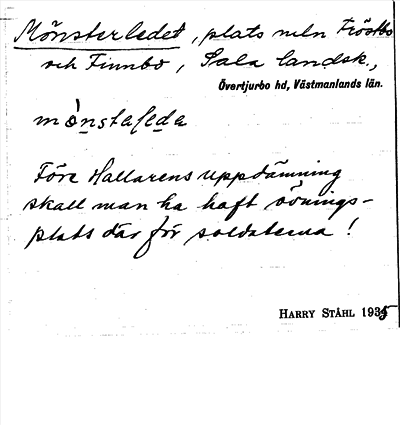 Mönsterledet, plats mln Fröstbo
och Finnbo, Sala landsk.,
Övertjurbo hd, Västmanlands län.
mònstaleda
Före Hallarens uppdämning
skall man ha haft övnings-
plats där för soldaterna!
HARRY STÅHL 1935